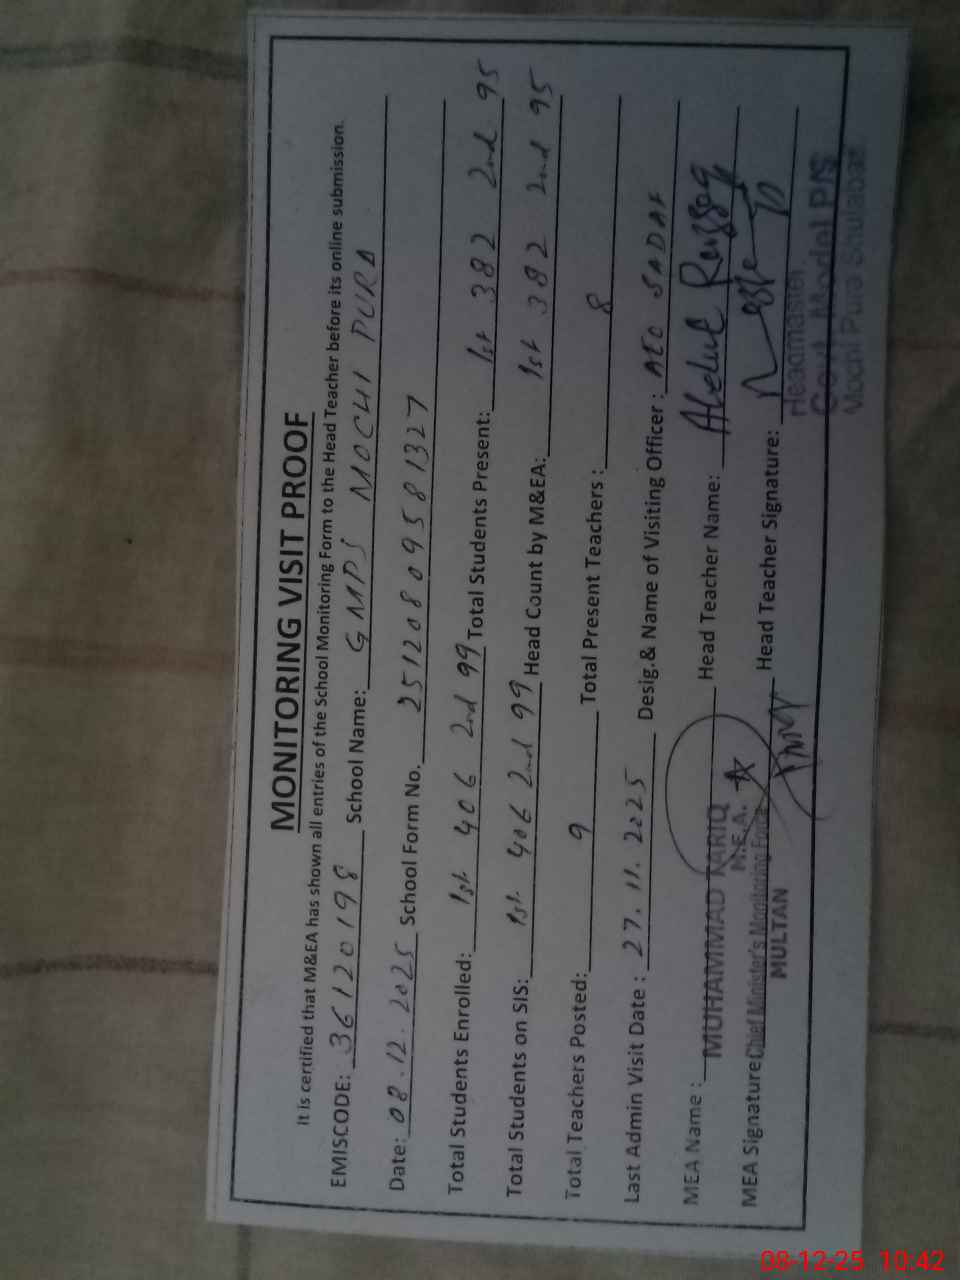 MONITORING VISIT PROOF
It is certified that M&EA has shown all entries of the School Monitoring Form to the Head Teacher before its online submission.
EMISCODE: 36120198 School Name: GMPS MOCHI PURA
Date: 08.12.2025 School Form No. 25120809581327
Total Students Enrolled: 1st 406 2nd 99 Total Students Present: 1st 382 2nd 95
Total Students on SIS: 1st 406 2nd 99 Head Count by M&EA: 1st 382 2nd 95
Total Teachers Posted: 9 Total Present Teachers : 8
Last Admin Visit Date : 27.11.2025 Desig.& Name of Visiting Officer : AEO SADAF
MEA Name : MUHAMMAD TARIQ Head Teacher Name: Abdul Razzaq
M.E.A.
MEA Signature Chief Minister's Monitoring Force Head Teacher Signature:
MULTAN
Headmaster
Govt. Model P/S
Mochi Pura Shujabad
08-12-25 10:42